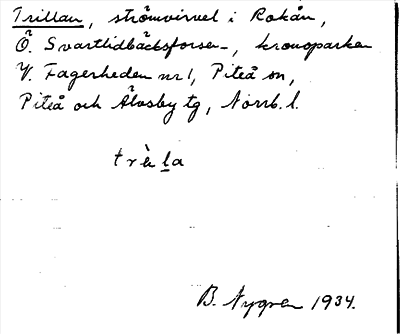 Trillan, strömvirvel i Rokån,
Ö. Svartlidbäcksforsen, kronoparken
V. Fagerheden nr 1, Piteå sn,
Piteå och Älvsby tg, Norrb. l.
B. Nygren 1934.